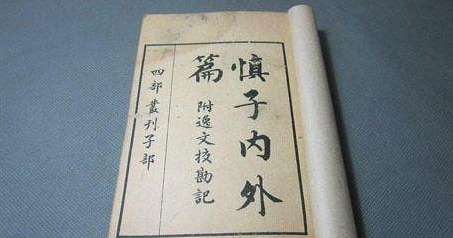 慎子内外
篇
附逸文校勘記
四部叢刊子部